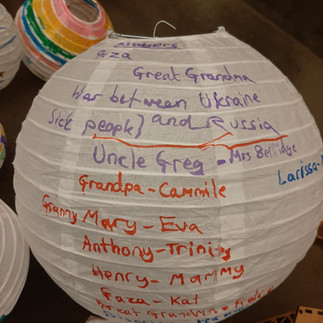 Prayers
Gaza
Great Grandma
War between Ukraine
and Russia
Sick people
Uncle Greg - Mrs
Larissa-
Grandpa-Cammile
Granny Mary-Eva
Anthony-Trinity
Henry-Mammy
Gaza-Kat
Great Grandma-